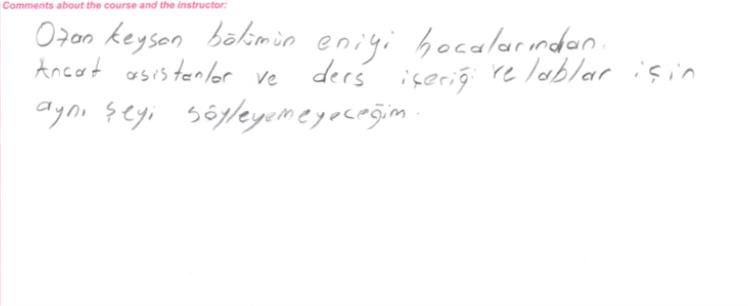 Comments about the course and the instructor:
Ozan keyson bölümün eniyi hocalarından.
Ancat asistanlar ve ders içeriği ve lablar için
aynı şeyi söyleyemeyeceğim.